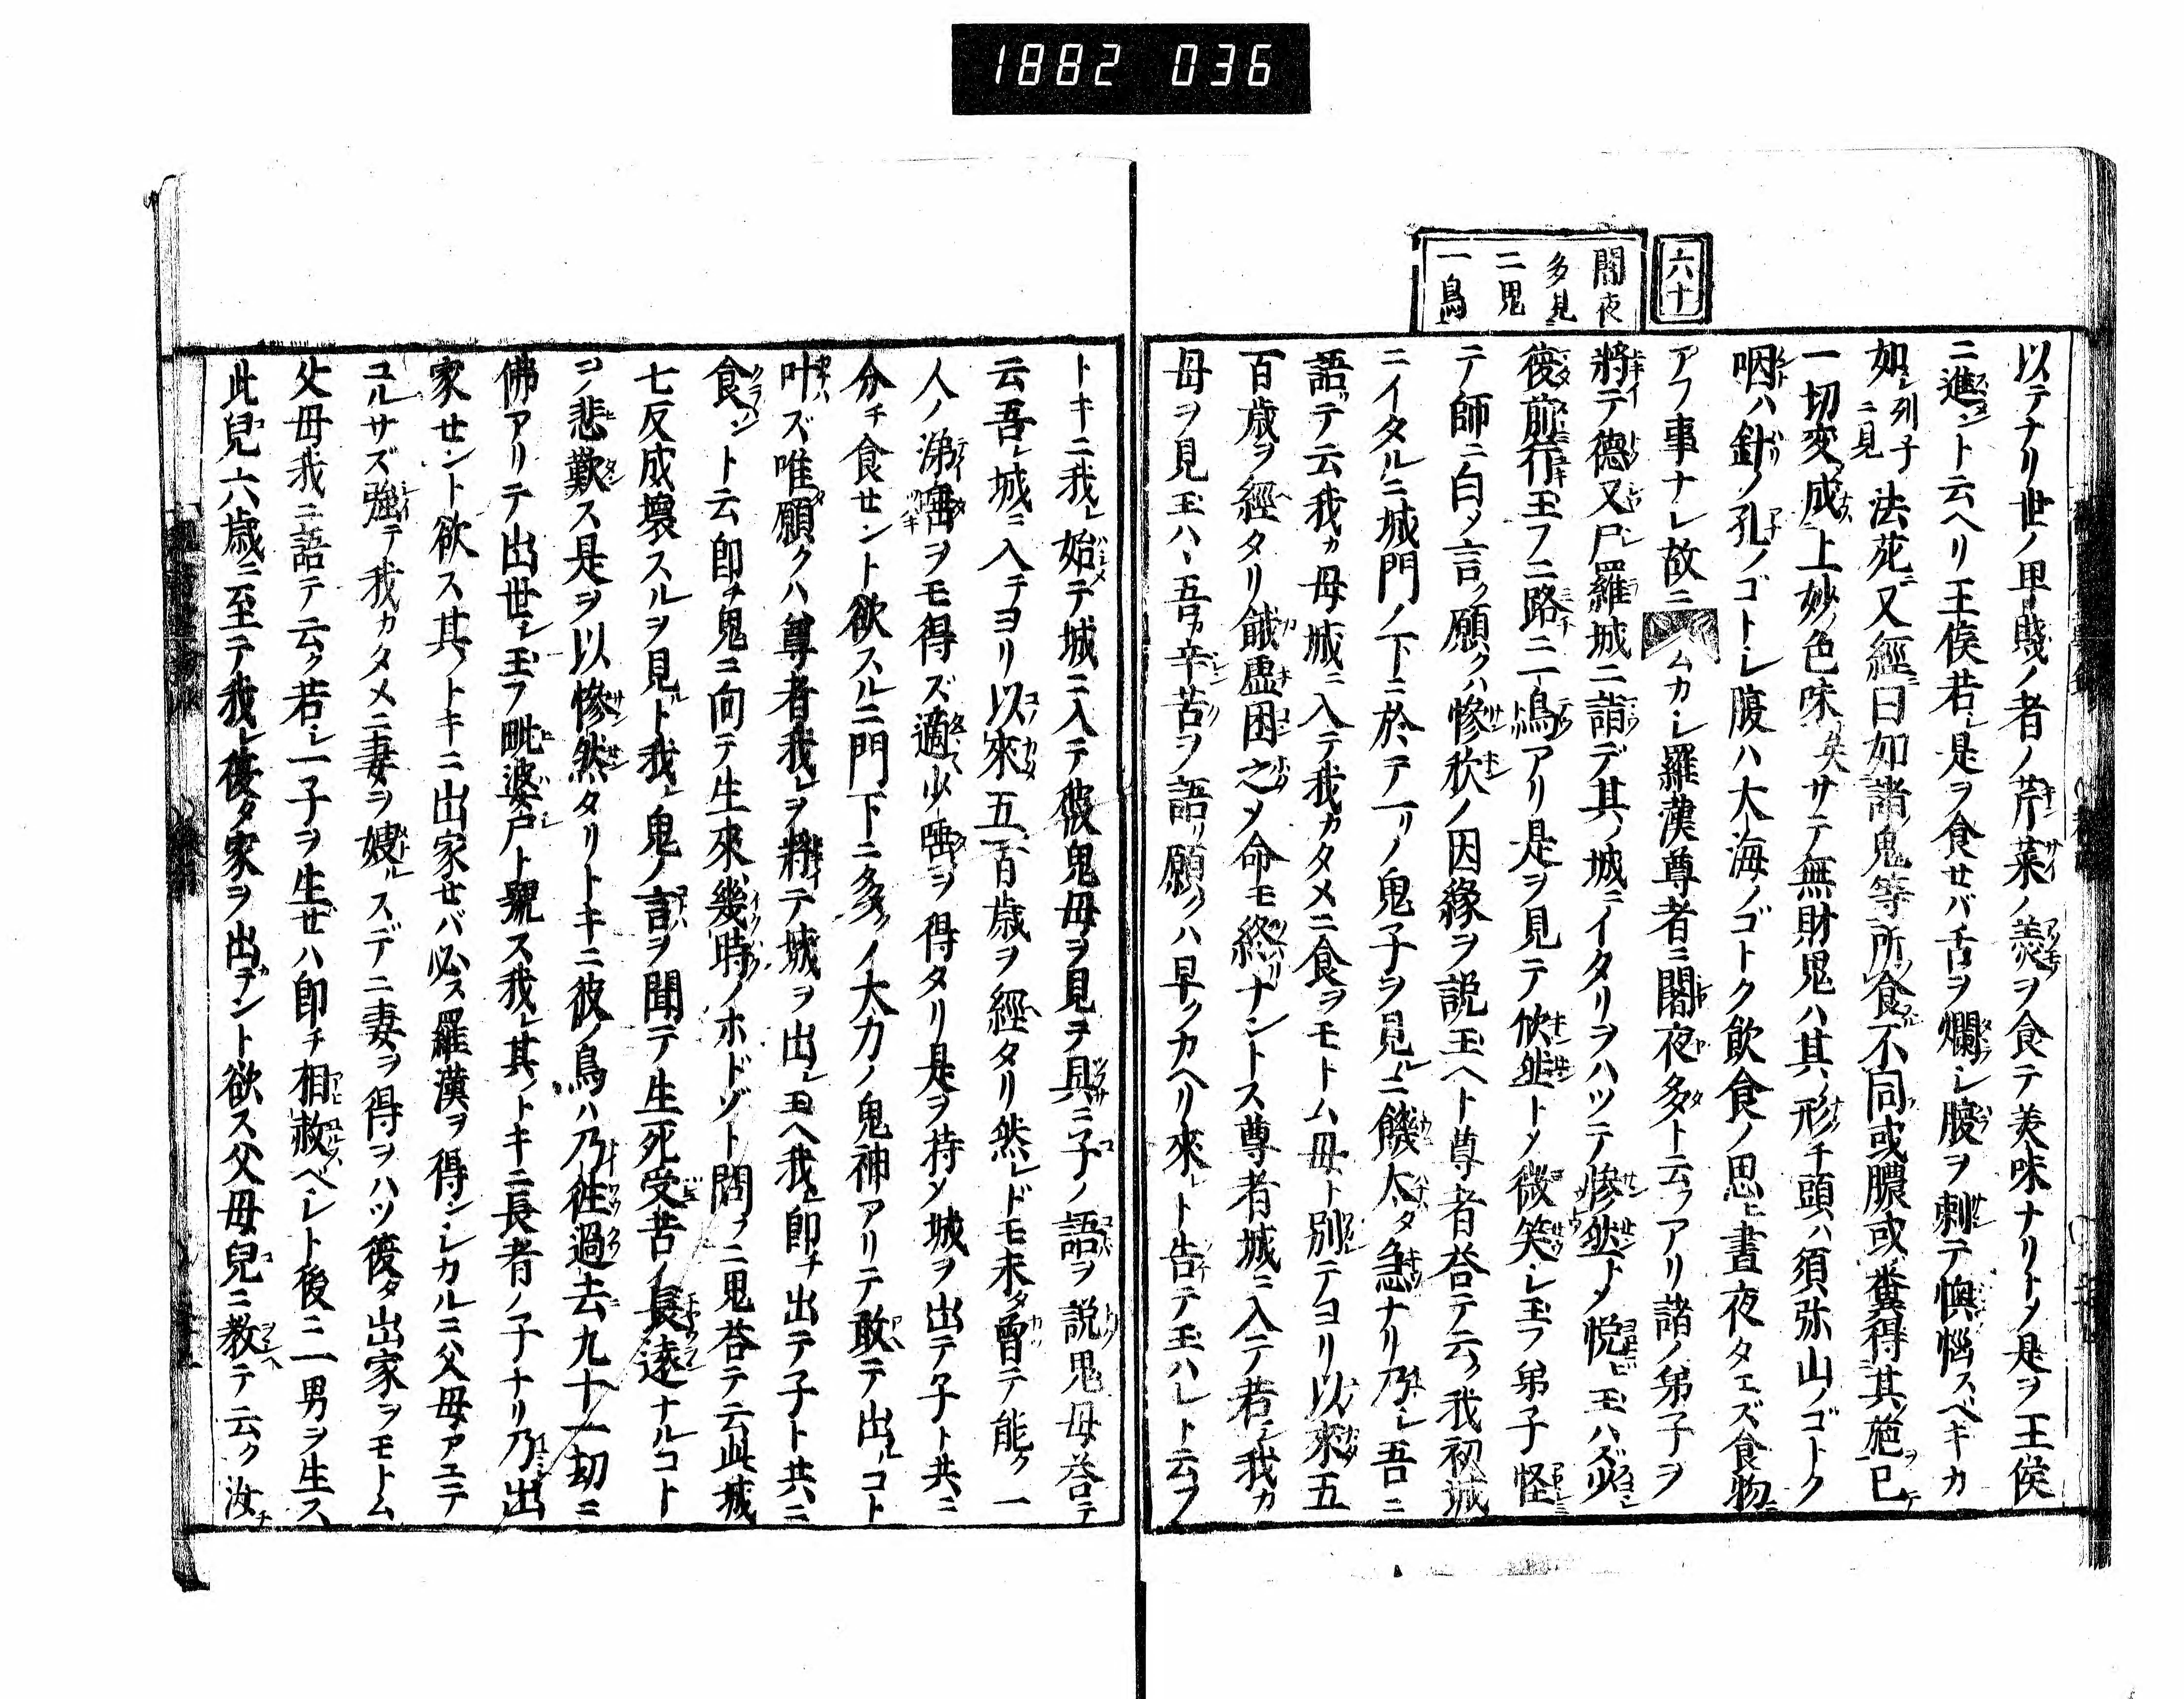 1882 036
六十
闇夜
多見
二鬼
一鳥
以テナリ世ノ卑賤ノ者ノ芹菜ノ羹ヲ食テ美味ナリトメ是ヲ王侯
ニ進ント云ヘリ王侯若シ是ヲ食セバ舌ヲ爛シ腹ヲ刺テ懊惱スベキカ
如シ列子ニ見 法苑ニ又經曰如諸鬼等所食不同或膿或糞得其施已
一切変成上妙色味矣サテ無財鬼ハ其ノ形チ頭ハ須弥山ノゴトク
咽ハ針ノ孔ノゴトシ腹ハ大海ノゴトク飲食ノ思ヒ晝夜タエズ食物ニ
アフ事ナシ故ニ ムカシ羅漢尊者ニ闍夜多ト云フアリ諸ノ弟子ヲ
將テ德叉尸羅城ニ詣デ其ノ城ニイタリヲハツテ慘然トメ悦ビ玉ハズ少シ
復前行玉フニ路ニ一鳥アリ是ヲ見テ欣然トメ微笑シ玉フ弟子怪
テ師ニ白メ言ク願クハ慘欣ノ因縁ヲ説玉ヘト尊者荅テ云ク我初城
ニイタルニ城門ノ下ニ於テ一リノ鬼子ヲ見ルニ饑太タ急ナリ乃シ吾ニ
語テ云我カ母城ニ入テ我カタメニ食ヲモトム母ト別テヨリ以來五
百歳ヲ經タリ餓虚困之メ命モ終リナントス尊者城ニ入テ若シ我カ
母ヲ見玉ハヽ吾カ辛苦ヲ語リ願クハ早クカヘリ來レト告テ玉ハレト云フ
トキニ我レ始テ城ニ入テ彼鬼母ヲ見ヲ具ニ子ノ語ヲ説鬼母荅テ
云吾レ城ニ入チヨリ以來五百歳ヲ經タリ然レドモ未タ曾テ能ク一
人ノ涕唾ヲモ得ズ適少唾ヲ得タリ是ヲ持メ城ヲ出テ子ト共ニ
分チ食セント欲スルニ門下ニ多クノ大力ノ鬼神アリテ敢テ出ルコト
叶ハズ唯願クハ尊者我レヲ將テ城ヲ出シ玉ヘ我レ即チ出テ子ト共ニ
食ント云即チ鬼ニ向テ生來幾時ノホドゾト問フニ鬼荅テ云此城
七反成壊スルヲ見ルト我レ鬼ノ言ヲ聞テ生死受苦ノ長遠ナルコト
ヲ悲歎ス是ヲ以慘然タリトキニ彼ノ鳥ハ乃徃過去九十一劫ニ
佛アリテ出世シ玉フ毗婆戸ト號ス我レ其ノトキニ長者ノ子ナリ乃出
家セント欲ス其ノトキニ出家セバ必ス羅漢ヲ得シシカルニ父母アエテ
ユルサズ強テ我カタメニ妻ヲ娶ルスデニ妻ヲ得ヲハツ復タ出家ヲモトム
父母我ニ語テ云ク若シ一子ヲ生ゼハ即チ相赦ベシト後ニ一男ヲ生ス
此兒六歳ニ至テ我レ復タ家ヲ出デント欲ス父母兒ニ教テ云ク汝チ